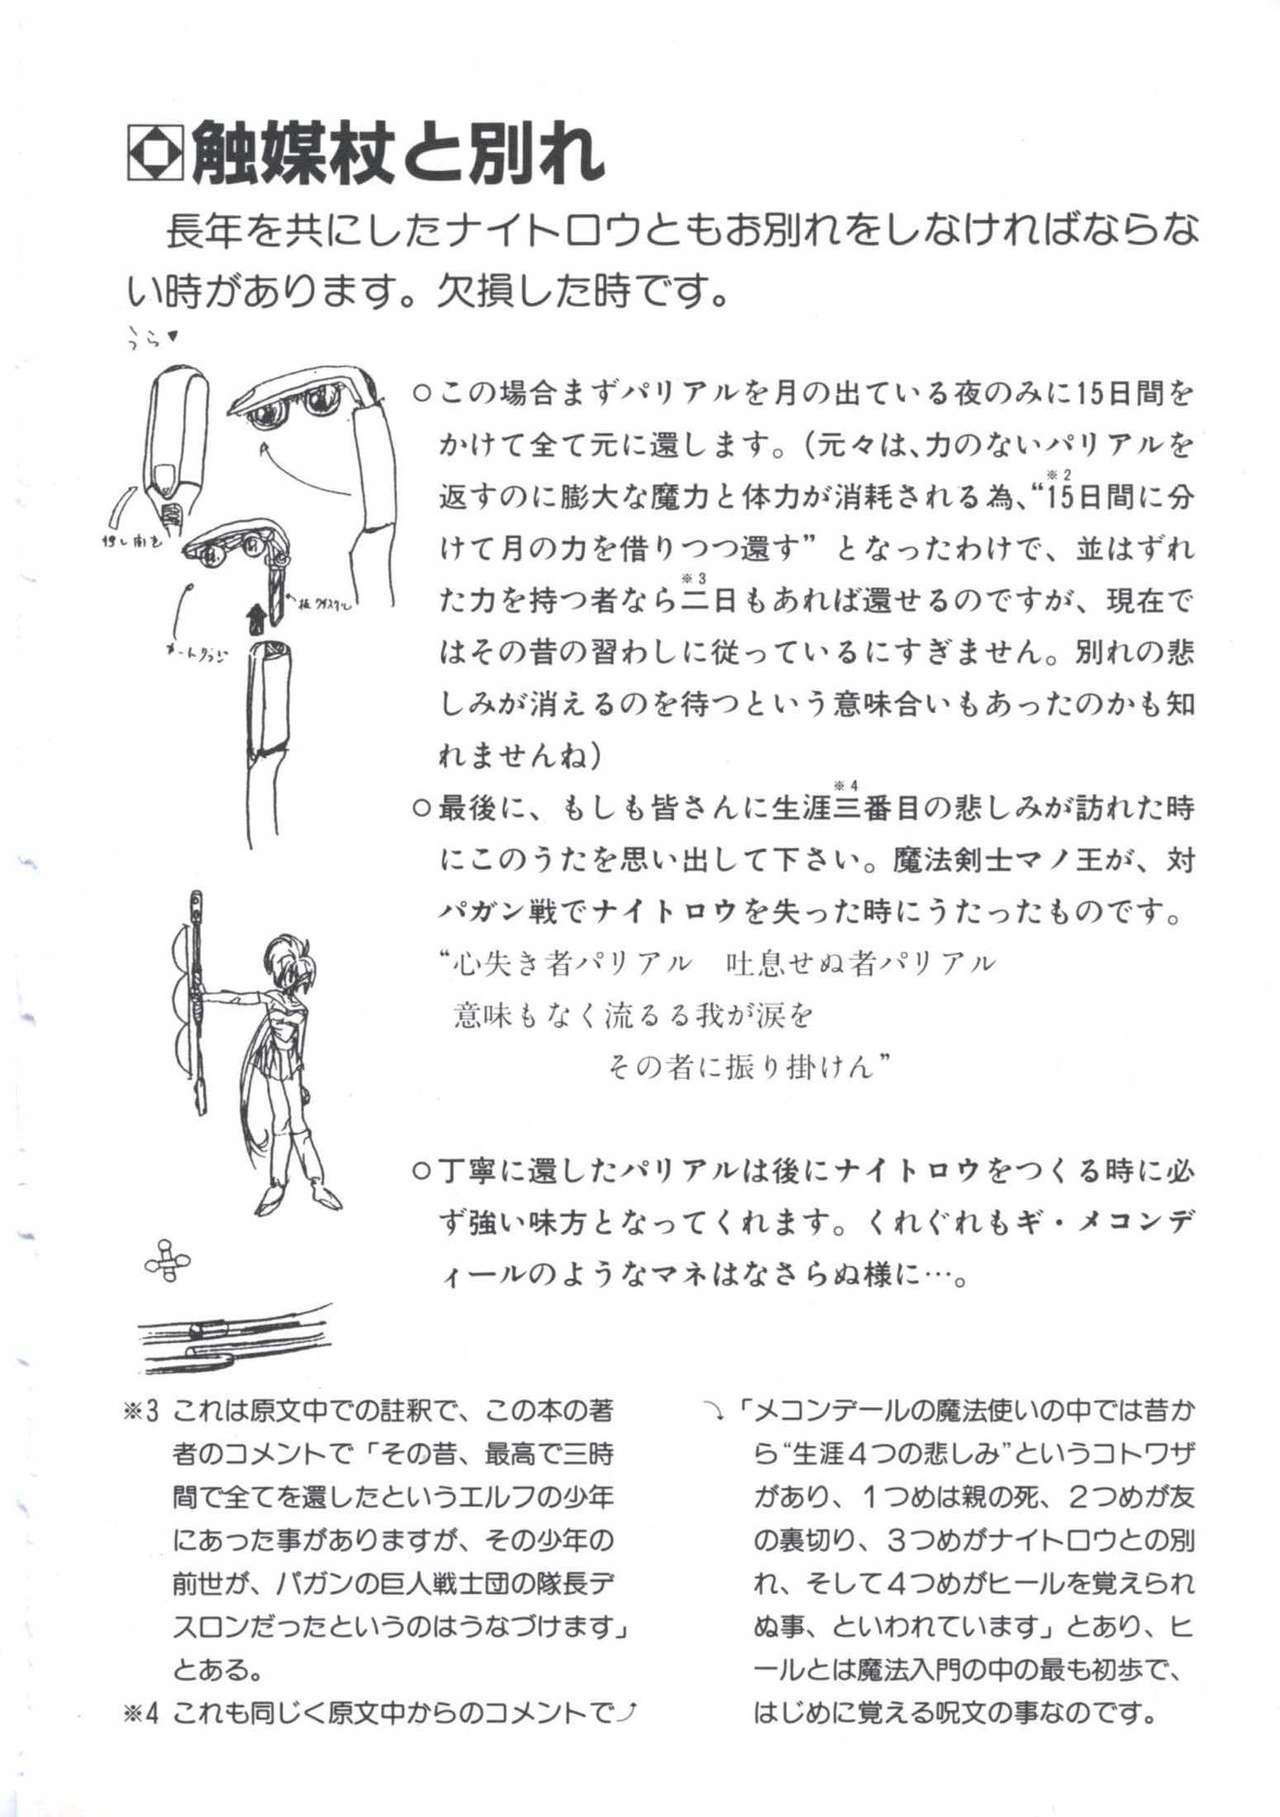 触媒杖と別れ
長年を共にしたナイトロウともお別れをしなければならな
い時があります。欠損した時です。
うら▼
○この場合まずパリアルを月の出ている夜のみに15日間を
かけて全て元に還します。(元々は、力のないパリアルを
返すのに膨大な魔力と体力が消耗される為、“15日間に分
※2
けて月の力を借りつつ還す”となったわけで、並はずれ
た力を持つ者なら二日もあれば還せるのですが、現在で
※3
はその昔の習わしに従っているにすぎません。別れの悲
しみが消えるのを待つという意味合いもあったのかも知
れませんね)
○最後に、もしも皆さんに生涯三番目の悲しみが訪れた時
※4
にこのうたを思い出して下さい。魔法剣士マノ王が、対
パガン戦でナイトロウを失った時にうたったものです。
“心失き者パリアル　吐息せぬ者パリアル
意味もなく流るる我が涙を
その者に振り掛けん”
○丁寧に還したパリアルは後にナイトロウをつくる時に必
ず強い味方となってくれます。くれぐれもギ・メコンデ
ィールのようなマネはなさらぬ様に…。
※3 これは原文中での註釈で、この本の著
者のコメントで「その昔、最高で三時
間で全てを還したというエルフの少年
にあった事がありますが、その少年の
前世が、パガンの巨人戦士団の隊長デ
スロンだったというのはうなづけます」
とある。
※4 これも同じく原文中からのコメントで
「メコンデールの魔法使いの中では昔か
ら“生涯4つの悲しみ”というコトワザ
があり、1つめは親の死、2つめが友
の裏切り、3つめがナイトロウとの別
れ、そして4つめがヒールを覚えられ
ぬ事、といわれています」とあり、ヒ
ールとは魔法入門の中の最も初歩で、
はじめに覚える呪文の事なのです。